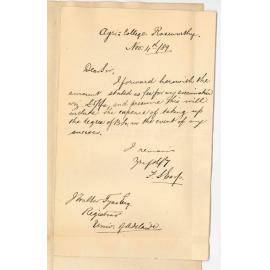 Agric. College, Roseworthy.
Nov. 4th /89.
Dear Sir,
I forward herewith the
amount stated as fee for my examination
and presume this will
include the expense of taking up
the degree of B.Sc. in the event of my
success.
I remain
J Walter Tyas Esq
Registrar
Univ. of Adelaide